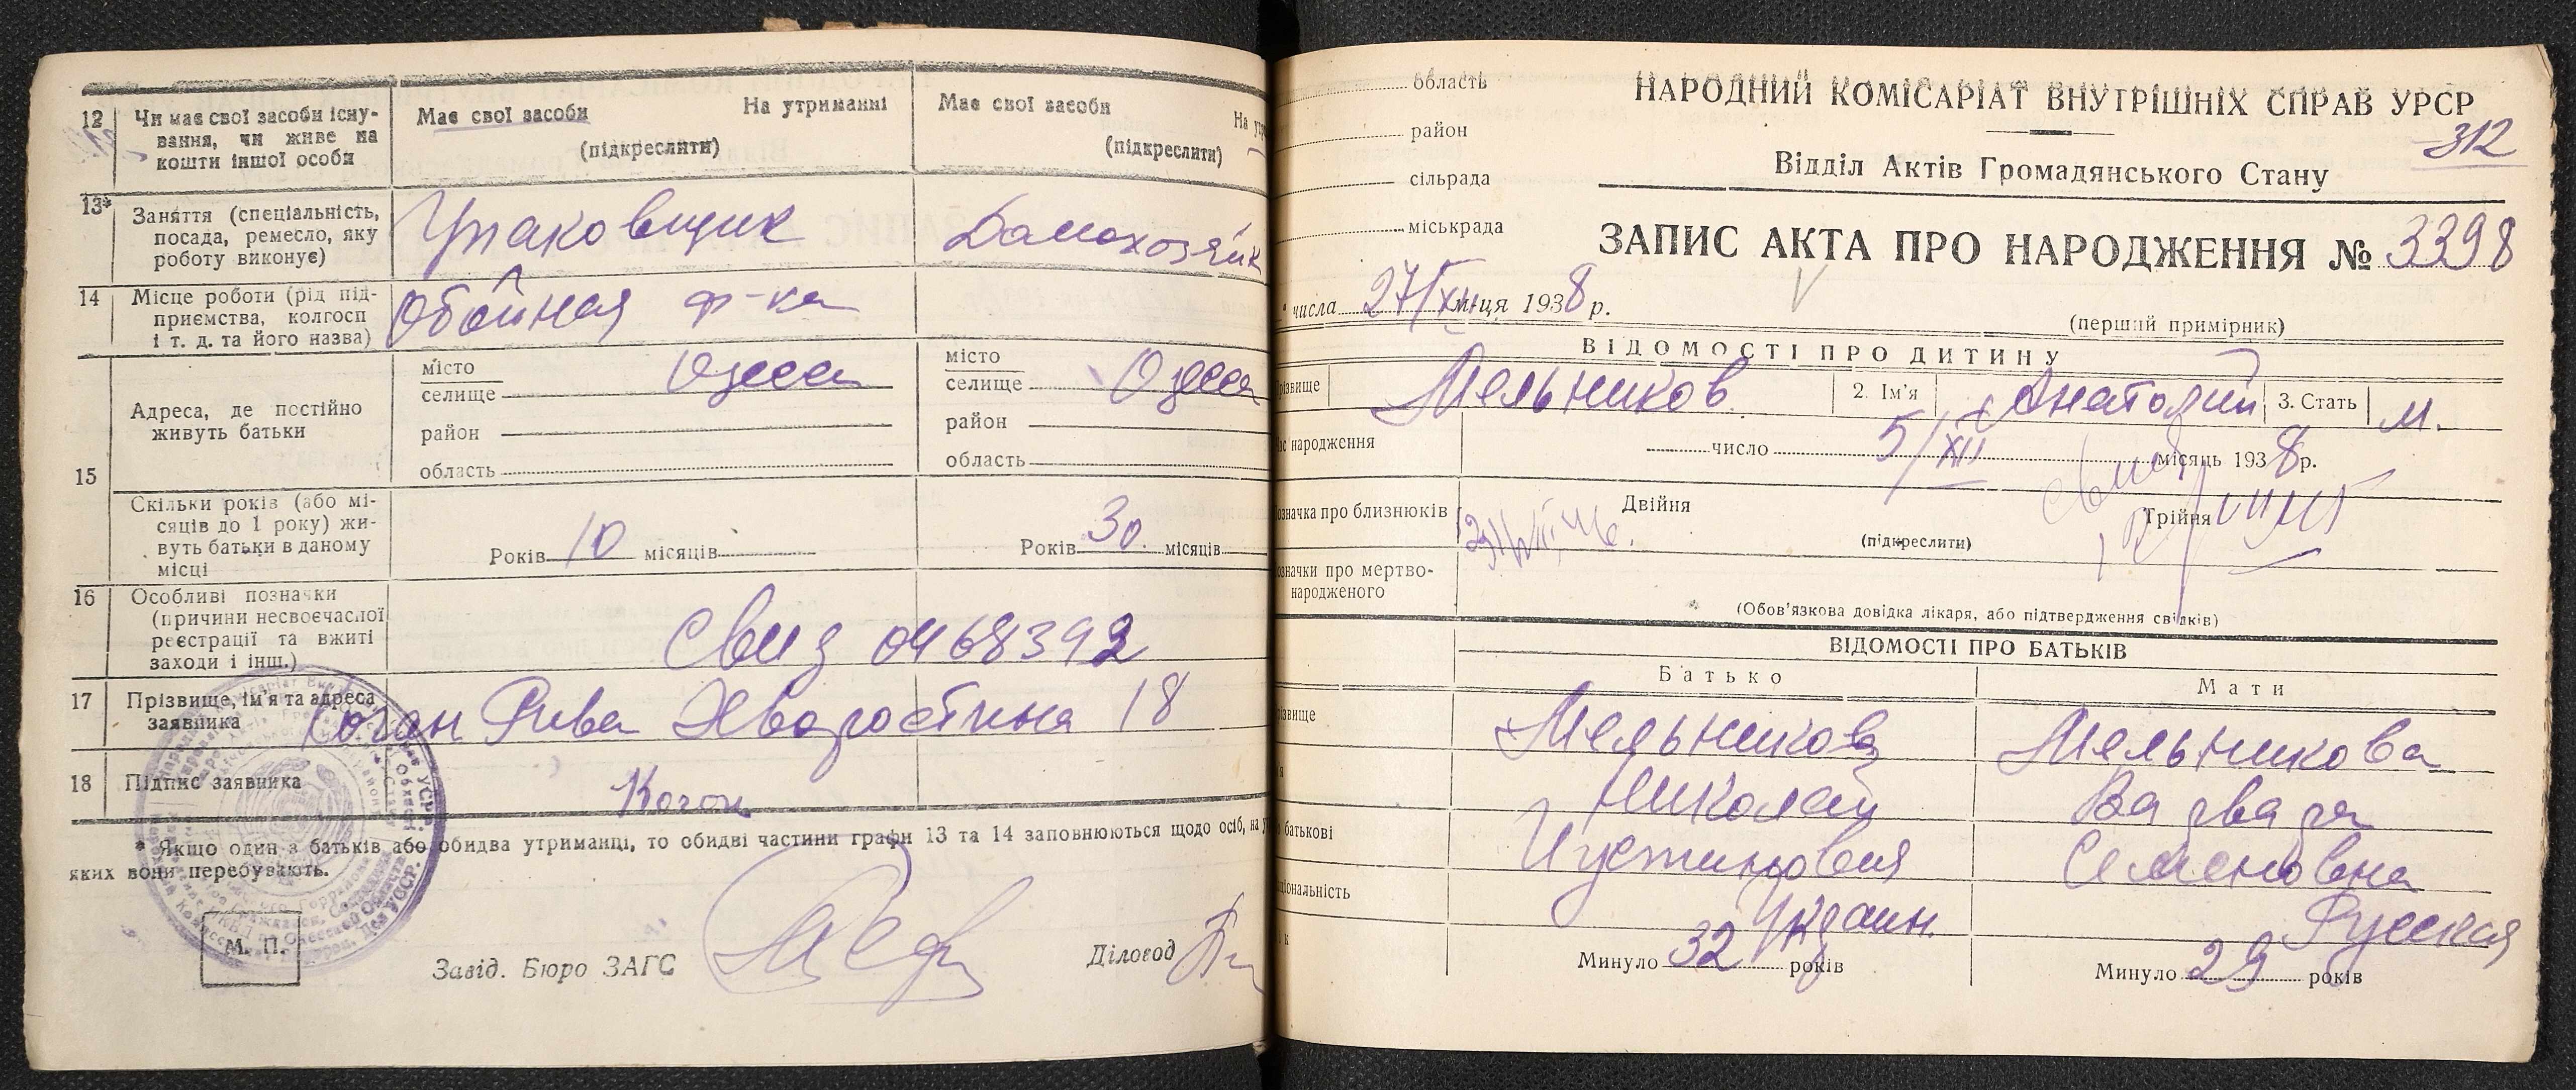 12 Чи має свої засоби існу-
вання, чи живе на
кошти іншої особи
Має свої засоби На утриманні
(підкреслити)
Має свої засоби На
(підкреслити)
13* Заняття (спеціальність,
посада, ремесло, яку
роботу виконує)
Упаковщик
Домохозяйк
14 Місце роботи (рід під-
приємства, колгосп
і т. д. та його назва)
Обойная ф-ка
15 Адреса, де постійно
живуть батьки
місто
селище Одесса
район
область
місто
селище Одесса
район
область
Скільки років (або мі-
сяців до 1 року) жи-
вуть батьки в даному
місці
Років 10 місяців
Років 30 місяців
16 Особливі позначки
(причини несвоєчасної
реєстрації та вжиті
заходи і інш.)
17 Прізвище, ім'я та адреса
заявника
Коган Рива Хворостина 18
18 Підпис заявника
Коган
* Якщо один з батьків або обидва утриманці, то обидві частини графи 13 та 14 заповнюються щодо осіб, на
яких вони перебувають.
М. П.
Завід. Бюро ЗАГС
Діловод
область
район
сільрада
міськрада
НАРОДНИЙ КОМІСАРІАТ ВНУТРІШНІХ СПРАВ УРСР
312
Відділ Актів Громадянського Стану
ЗАПИС АКТА ПРО НАРОДЖЕННЯ № 3398
числа 27/XII м-ця 1938 р.
(перший примірник)
ВІДОМОСТІ ПРО ДИТИНУ
різвище Мельников 2. Ім'я Анатолий 3. Стать М.
ас народження число 5/XII місяць 1938 р.
означка про близнюків Двійня Трійня
(підкреслити)
означки про мертво-
народженого
(Обов'язкова довідка лікаря, або підтвердження свідків)
ВІДОМОСТІ ПРО БАТЬКІВ
Батько Мати
різвище Мельников Мельникова
Николай Варвара
батькові Иустинович Семеновна
ціональність Украин. Русская
Минуло 32 років Минуло 29 років